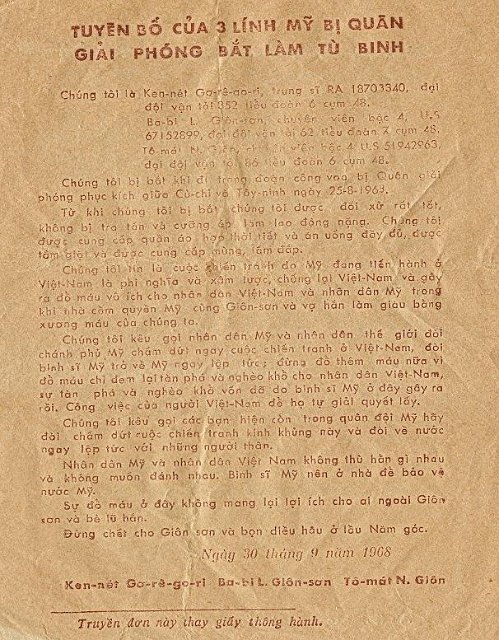 TUYÊN BỐ CỦA 3 LÍNH MỸ BỊ QUÂN
GIẢI PHÓNG BẮT LÀM TÙ BINH
Chúng tôi là Ken-nét Gơ-rê-go-ri, trung sĩ RA 18703340, đại
đội vận tải 352 tiểu đoàn 6 cụm 48.
Ba-bi L. Giôn-sơn, chuyên viên bậc 4, U.S
67152899, đại đội vận tải 62 tiểu đoàn 7 cụm 48.
Tô-mát N. Giôn, viên bậc 4 U.S 51942963,
đại đội vận tải tiểu đoàn 6 cụm 48.
Chúng tôi bị bắt khi đi trong đoàn công voa bị Quân giải
phóng phục kích giữa Củ-chi và Tây-ninh ngày 25-8-1968.
Từ khi chúng tôi bị bắt chúng tôi được đối xử rất tốt,
không bị tra tấn và cưỡng ép làm lao động nặng. Chúng tôi
được cung cấp quần áo hợp thời tiết và ăn uống đầy đủ, được
tắm giặt và được cung cấp mùng, tấm đắp.
Chúng tôi tin là cuộc chiến tranh do Mỹ đang tiến hành ở
Việt-Nam là phi nghĩa và xâm lược, chống lại Việt-Nam và gây
ra đổ máu vô ích cho nhân dân Việt-Nam và nhân dân Mỹ trong
khi nhà cầm quyền Mỹ cùng Giôn-sơn và vợ hắn làm giàu bằng
xương máu của chúng ta.
Chúng tôi kêu gọi nhân dân Mỹ và nhân dân thế giới đòi
chánh phủ Mỹ chấm dứt ngay cuộc chiến tranh ở Việt-Nam, đòi
binh sĩ Mỹ trở về Mỹ ngay lập tức; đừng đổ thêm máu nữa vì
đổ máu chỉ đem lại tàn phá và nghèo khổ cho nhân dân Việt-Nam,
sự tàn phá và nghèo khổ vốn đã do binh sĩ Mỹ ở đây gây ra
rồi. Công việc của người Việt-Nam để họ tự giải quyết lấy.
Chúng tôi kêu gọi các bạn hiện còn trong quân đội Mỹ hãy
đòi chấm dứt cuộc chiến tranh kinh khủng này và đòi về nước
ngay lập tức với những người thân.
Nhân dân Mỹ và nhân dân Việt Nam không thù hằn gì nhau
và không muốn đánh nhau. Binh sĩ Mỹ nên ở nhà để bảo vệ
nước Mỹ.
Sự đổ máu ở đây không mang lại lợi ích cho ai ngoài Giôn
sơn và bè lũ hắn.
Đừng chết cho Giôn sơn và bọn diều hâu ở lầu Năm góc.
Ngày 30 tháng 9 năm 1968
Ken-nét Gơ-rê-go-ri Ba-bi L. Giôn-sơn Tô-mát N. Giôn
Truyền đơn này thay giấy thông hành.